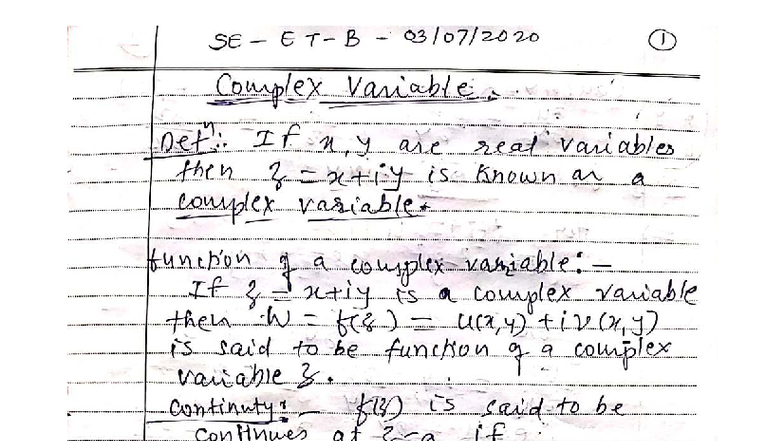 SE - ET-B - 03/07/2020 ①
Complex Variable.
Defⁿ: If x, y are real variables
then z = x+iy is known as a
complex variable.
function of a complex variable:-
If z = x+iy is a complex variable
then W = f(z) = u(x,y) + iv(x,y)
is said to be function of a complex
variable z.
Continuty:- f(z) is said to be
continues at z=a if